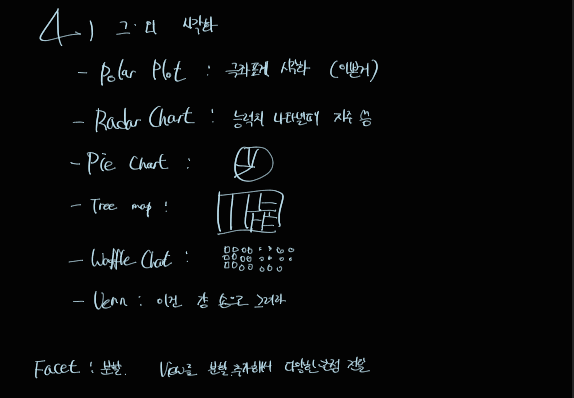 4.1 그 외 시각화
- Polar Plot : 극좌표계 시각화 (이쁜거)
- Radar Chart : 능력치 나타낼때 자주 씀
- Pie Chart :
- Tree map :
- Waffle Chat :
- Venn : 이건 걍 손으로 그려라
Facet : 분할. View를 분할,추가해서 다양한 관점 전달